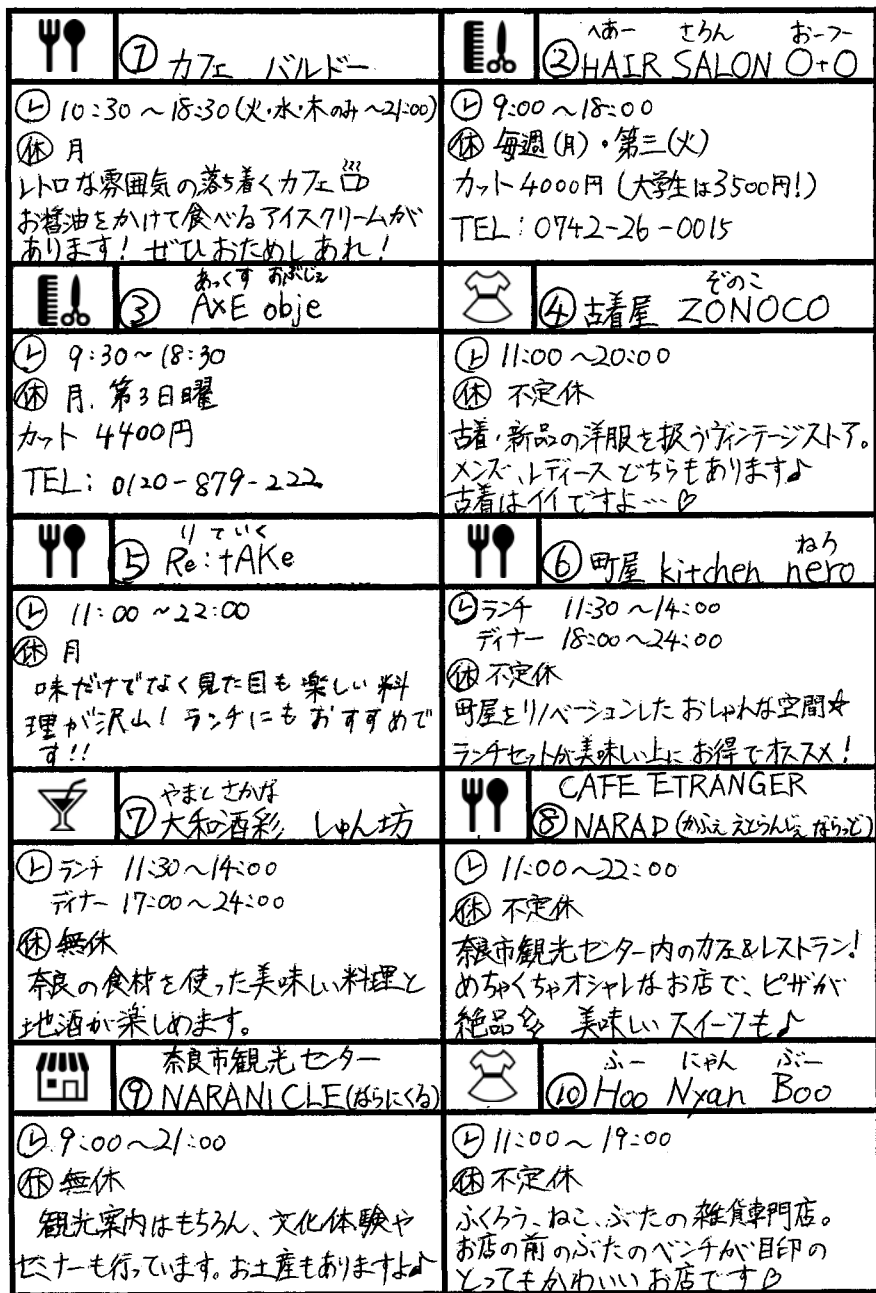 ① カフェ バルドー
㋹ 10:30~18:30(火・水・木のみ~21:00)
㊡ 月
レトロな雰囲気の落ち着くカフェ
お醤油をかけて食べるアイスクリームが
あります!ぜひおためしあれ!
へあー さろん おーつー
② HAIR SALON O+O
㋹ 9:00~18:00
㊡ 毎週(月)・第三(火)
カット4000円(大学生は3500円!)
TEL:0742-26-0015
あっくす おぶじぇ
③ AXE obje
㋹ 9:30~18:30
㊡ 月、第3日曜
カット 4400円
TEL: 0120-879-222
ぞのこ
④ 古着屋 ZONOCO
㋹ 11:00~20:00
㊡ 不定休
古着・新品の洋服を扱うヴィンテージストア。
メンズ、レディースどちらもあります♪
古着はイイですよ…♡
りていく
⑤ Re:tAKe
㋹ 11:00~22:00
㊡ 月
味だけでなく見た目も楽しい料
理が沢山!ランチにもおすすめで
す!!
ねろ
⑥ 町屋 kitchen nero
㋹ ランチ 11:30~14:00
ディナー 18:00~24:00
㊡ 不定休
町屋をリノベーションしたおしゃれな空間☆
ランチセットが美味しい上にお得でオススメ!
やまとさかな
⑦ 大和酒彩 しゅん坊
㋹ ランチ 11:30~14:00
ディナー 17:00~24:00
㊡ 無休
奈良の食材を使った美味しい料理と
地酒が楽しめます。
CAFE ETRANGER
⑧ NARAD(かふぇ えとらんじぇ ならっど)
㋹ 11:00~22:00
㊡ 不定休
奈良市観光センター内のカフェ&レストラン!
めちゃくちゃオシャレなお店で、ピザが
絶品☆ 美味しいスイーツも♪
奈良市観光センター
⑨ NARANICLE(ならにくる)
㋹ 9:00~21:00
㊡ 無休
観光案内はもちろん、文化体験や
セミナーも行っています。お土産もありますよ♪
ふー にゃん ぶー
⑩ Hoo Nyan Boo
㋹ 11:00~19:00
㊡ 不定休
ふくろう、ねこ、ぶたの雑貨専門店。
お店の前のぶたのベンチが目印の
とってもかわいいお店です♡